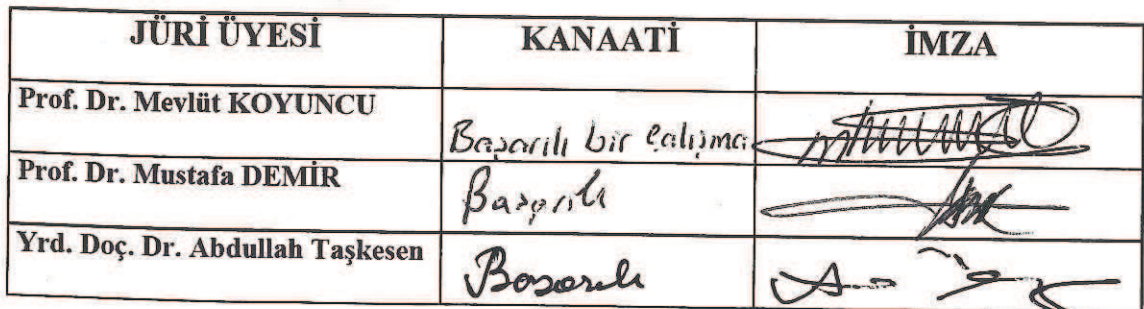 JÜRİ ÜYESİ KANAATİ İMZA
Prof. Dr. Mevlüt KOYUNCU Başarılı bir çalışma
Prof. Dr. Mustafa DEMİR Başarılı
Yrd. Doç. Dr. Abdullah Taşkesen Başarılı